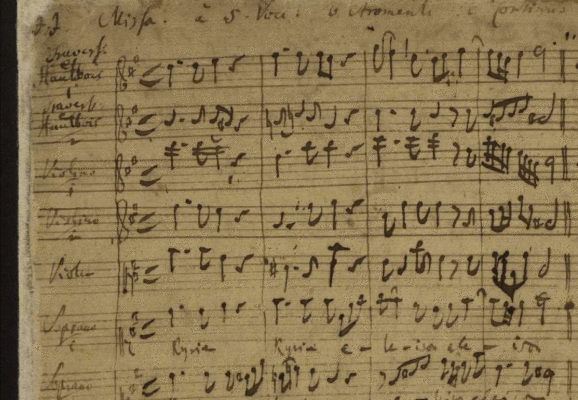 J. J. Missa. à 5. Voci. 6 Stromenti e Continuo
Travers.
Hautbois
1
Travers.
Hautbois
2
Violino
1
Violino
2
Viola
Soprano
1
Kyrie Kyrie e - le - ison ele - ison
Soprano